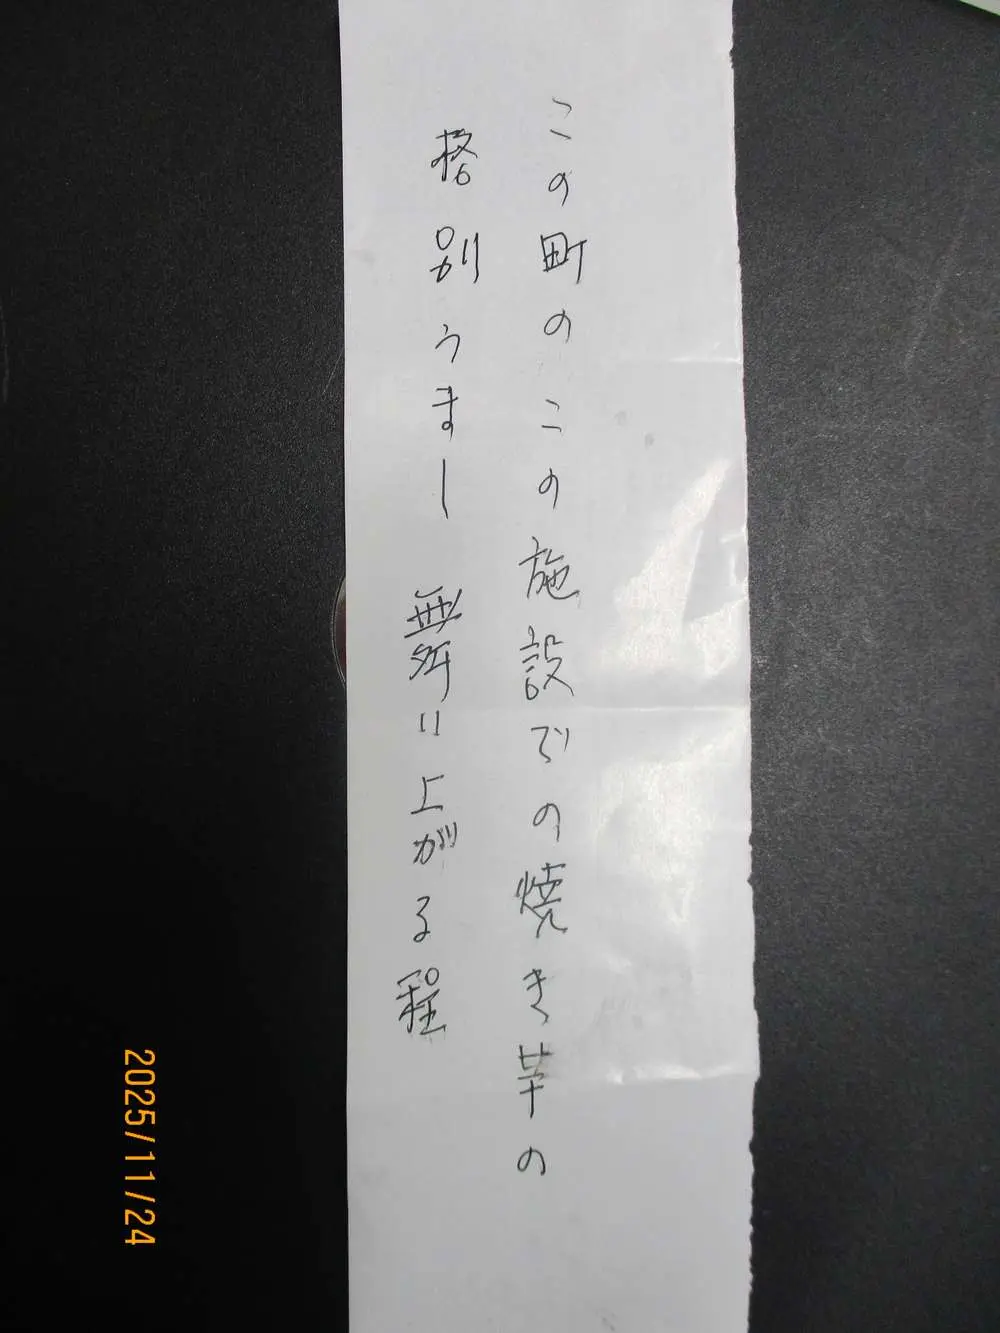 この町のこの施設での焼き芋の
格別うまし 舞い上がる程
2025/11/24